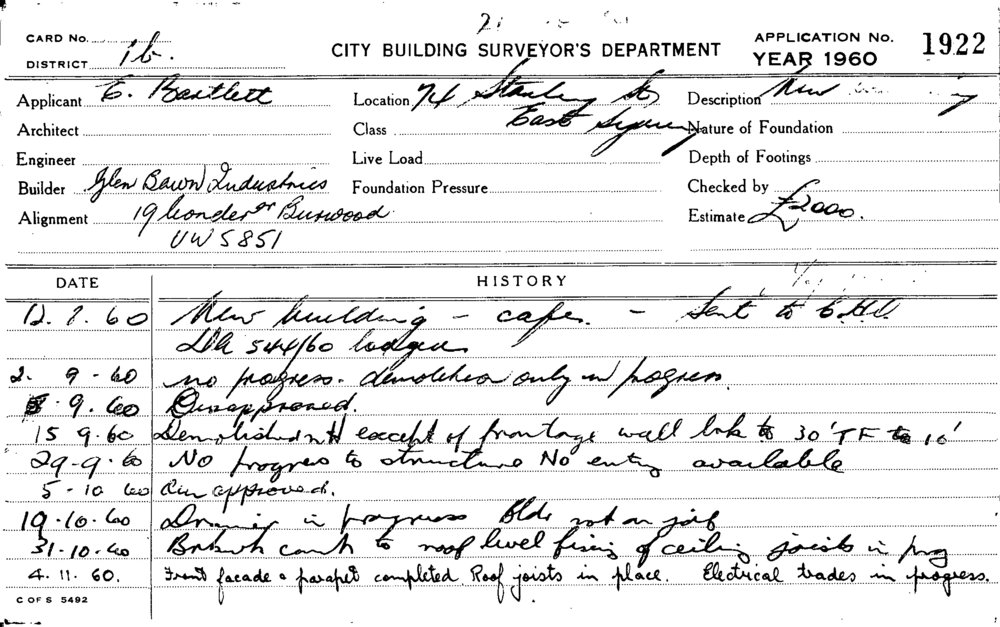 CARD No.
DISTRICT 1b.
CITY BUILDING SURVEYOR'S DEPARTMENT
APPLICATION No. 1922
YEAR 1960
Applicant E. Bartlett
Location 74 Stanley St
East Sydney
Description New
Architect
Class
Nature of Foundation
Engineer
Live Load
Depth of Footings
Builder Glen Bawn Industries
Foundation Pressure
Checked by
Alignment 19 Conder St Burwood
Estimate £2000.
UW 5851
DATE HISTORY
12. 8. 60 New building - cafe. - Sent to C.H.O.
DA 544/60 lodged
2. 9 - 60 no progress. demolition only in progress.
9. 60 Disapproved.
15 9. 60 Demolished except frontage wall to 30' TF to 10'
29-9-60 No progress to structure No entry available
5-10 60 approved.
19-10-60 in progress Bldr not on job
31-10-60 to roof level fixing of ceiling joists in prog
4. 11. 60. Front facade & parapet completed. Roof joists in place. Electrical trades in progress.
C OF S 5492